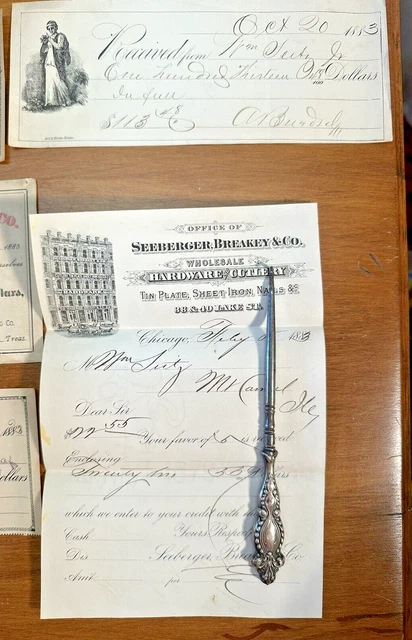 Oct 20 1883
Received from Wm Seitz Jr
One Hundred Thirteen Dollars
In full
$113 48
CO.
1883
ollars,
Co
Treas.
OFFICE OF
SEEBERGER, BREAKEY & CO.
WHOLESALE
HARDWARE AND CUTLERY
TIN PLATE, SHEET IRON, NAILS &c
38 & 40 LAKE ST.
Chicago, 1883
M Wm Seitz
Mt Carmel
Ills
Dear Sir
$22 55 Your favor of 6 is received
Enclosing
Twenty two 55 Dollars
which we enter to your credit with
Cash Yours Respec
Dis Seeberger, Brea Co
Amt per
1883
ollars